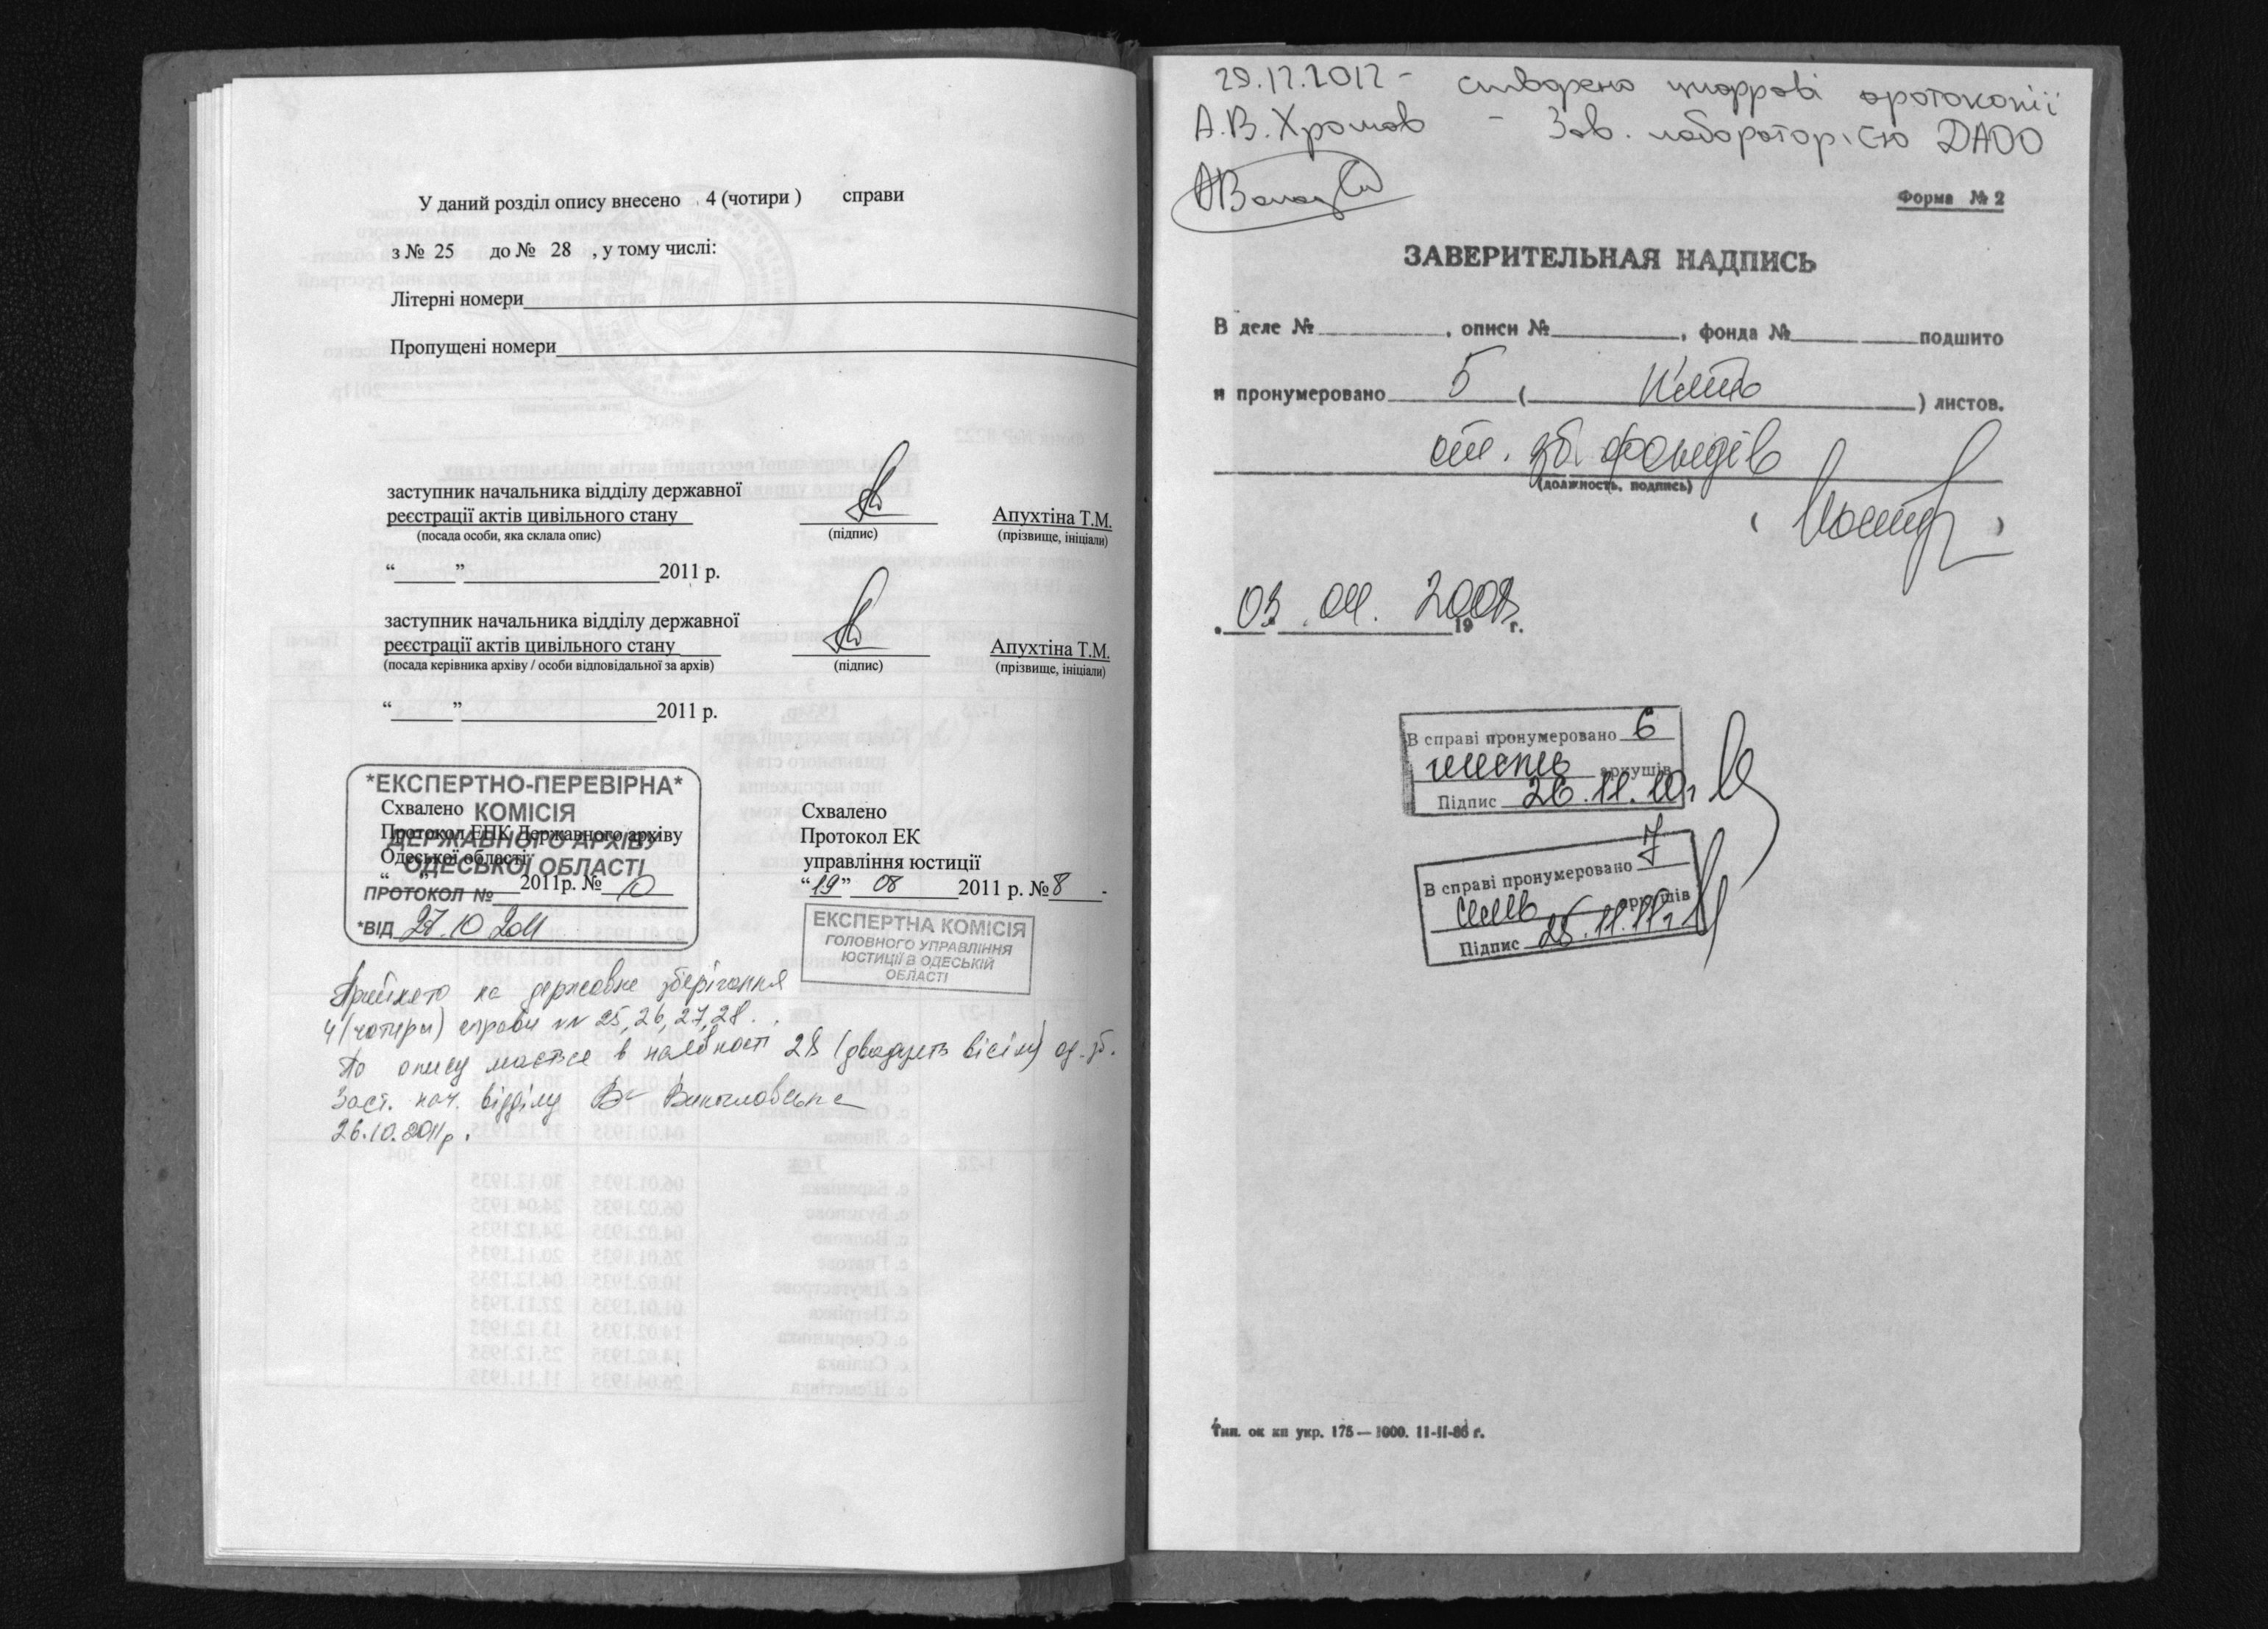 У даний розділ опису внесено 4 (чотири ) справи
з № 25 до № 28 , у тому числі:
Літерні номери
Пропущені номери
заступник начальника відділу державної
реєстрації актів цивільного стану Апухтіна Т.М.
(посада особи, яка склала опис) (підпис) (прізвище, ініціали)
“ ” 2011 р.
заступник начальника відділу державної
реєстрації актів цивільного стану Апухтіна Т.М.
(посада керівника архіву / особи відповідальної за архів) (підпис) (прізвище, ініціали)
“ ” 2011 р.
*ЕКСПЕРТНО-ПЕРЕВІРНА*
КОМІСІЯ
ДЕРЖАВНОГО АРХІВУ
ОДЕСЬКОЇ ОБЛАСТІ
ПРОТОКОЛ № 10
*ВІД 27.10 2011
Схвалено
Протокол ЕПК Державного архіву
Одеської області
“ ” 2011р. №
Схвалено
Протокол ЕК
управління юстиції
“19” 08 2011 р. №8
ЕКСПЕРТНА КОМІСІЯ
ГОЛОВНОГО УПРАВЛІННЯ
ЮСТИЦІЇ В ОДЕСЬКІЙ
ОБЛАСТІ
Прийнято на державне зберігання
4 (чотири) справи №№ 25, 26, 27, 28.
По опису мається в наявності 28 (двадцять вісім) од. зб.
Заст. нач. відділу
26.10.2011р.
29.12.2012 - створено цифрові фотокопії
А.В. Хромов - Зав. лабораторією ДАОО
Форма № 2
ЗАВЕРИТЕЛЬНАЯ НАДПИСЬ
В деле № , описи № , фонда № подшито
и пронумеровано 5 ( п'ять ) листов.
фондів
(должность, подпись)
03. 04. 2009 19 г.
В справі пронумеровано 6
шість аркушів
Підпис 26.11.10р
В справі пронумеровано 7
сім аркушів
Підпис 25.11.11г.
Тип. ок кп укр. 175 — 1000. 11-II-86 г.